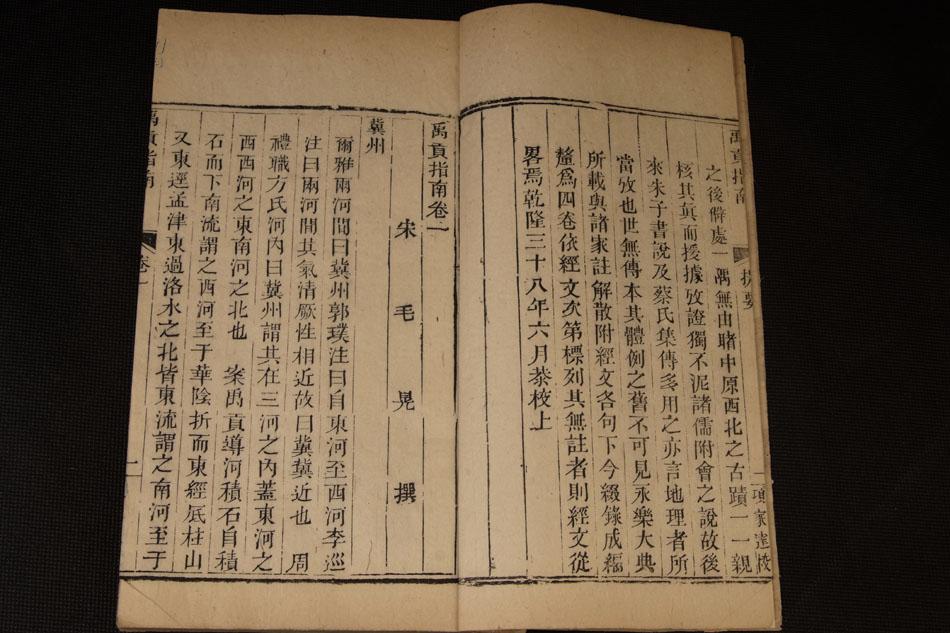 禹貢指南
提要
一
項家達校
之後僻處一隅無由睹中原西北之古蹟一一親
核其真而援據攷證獨不泥諸儒附會之說故後
來朱子書說及蔡氏集傳多用之亦言地理者所
當攷也世無傳本其體例之舊不可見永樂大典
所載與諸家註解散附經文各句下今綴錄成編
釐為四卷依經文次第標列其無註者則經文從
畧焉乾隆三十八年六月恭校上
禹貢指南卷一
宋毛晃撰
冀州
爾雅兩河間曰冀州郭璞注曰自東河至西河李巡
注曰兩河間其氣清厥性相近故曰冀冀近也 周
禮職方氏河內曰冀州謂其在三河之內蓋東河之
西西河之東南河之北也 案禹貢導河積石自積
石而下南流謂之西河至于華陰折而東經底柱山
又東逕孟津東過洛水之北皆東流謂之南河至于
禹貢指南
卷一
一